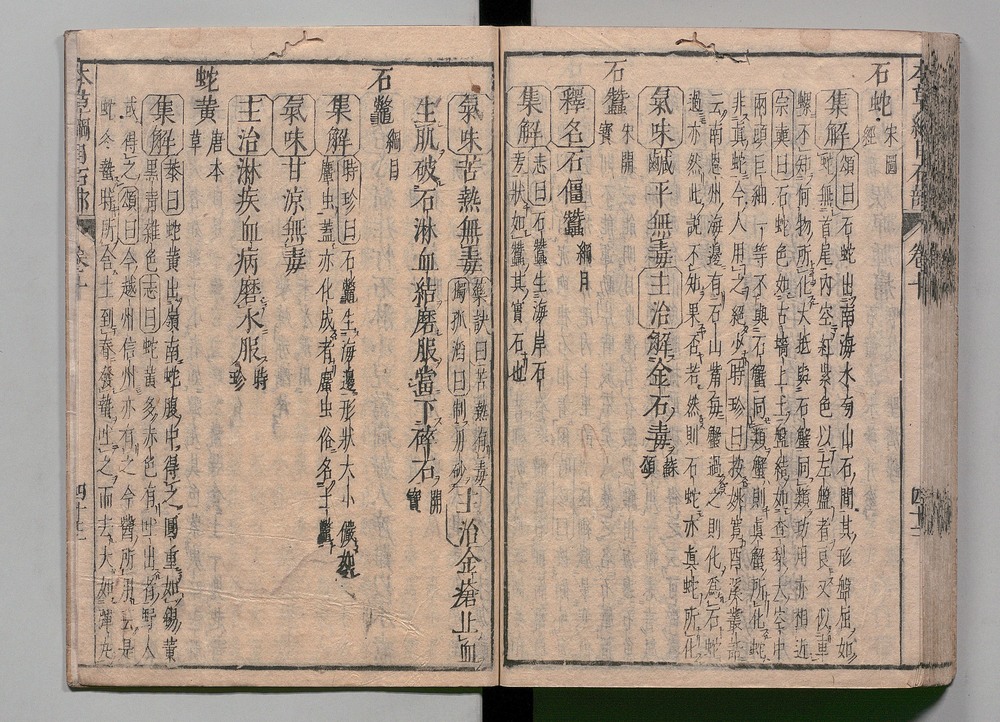 石蛇 宋圖經
集解 頌曰石蛇出南海水旁山石間其形盤屈如
蛇無首尾內空紅紫色以左盤者良又似車
螺不知何物所化大抵與石蟹同類功用亦相近
宗奭曰石蛇色如古墻上土盤結如査梨大空中
兩頭巨細一等不與石蟹同類蟹則真蟹所化蛇
非真蛇今人用之絕少時珍曰按姚寬西溪叢話
云南恩州海邊有石山觜每蟹過之則化為石蛇
過亦然此說不知果否若然則石蛇亦真蛇所化
氣味鹹平無毒主治解金石毒 蘇頌
石蠶 宋開寶
釋名石僵蠶 綱目
集解 志曰石蠶生海岸石
旁狀如蠶其實石也
氣味苦熱無毒 藥訣曰苦熱有毒
獨孤滔曰制丹砂 主治金瘡止血
生肌破石淋血結磨服當下碎石 開寶
石鼈 綱目
集解 時珍曰石鼈生海邊形狀大小儼如
䗪虫蓋亦化成者䗪虫俗名土鼈
氣味甘涼無毒
主治淋疾血病磨水服 時珍
蛇黃 唐本草
集解 恭曰蛇黃出嶺南蛇腹中得之圓重如錫黃
黑青雜色志曰蛇黃多赤色有吐出者野人
或得之頌曰今越州信州亦有之今醫所用云是
蛇冬蟄時所含土到春發蟄吐之而去大如彈丸
本草綱目石部 卷十